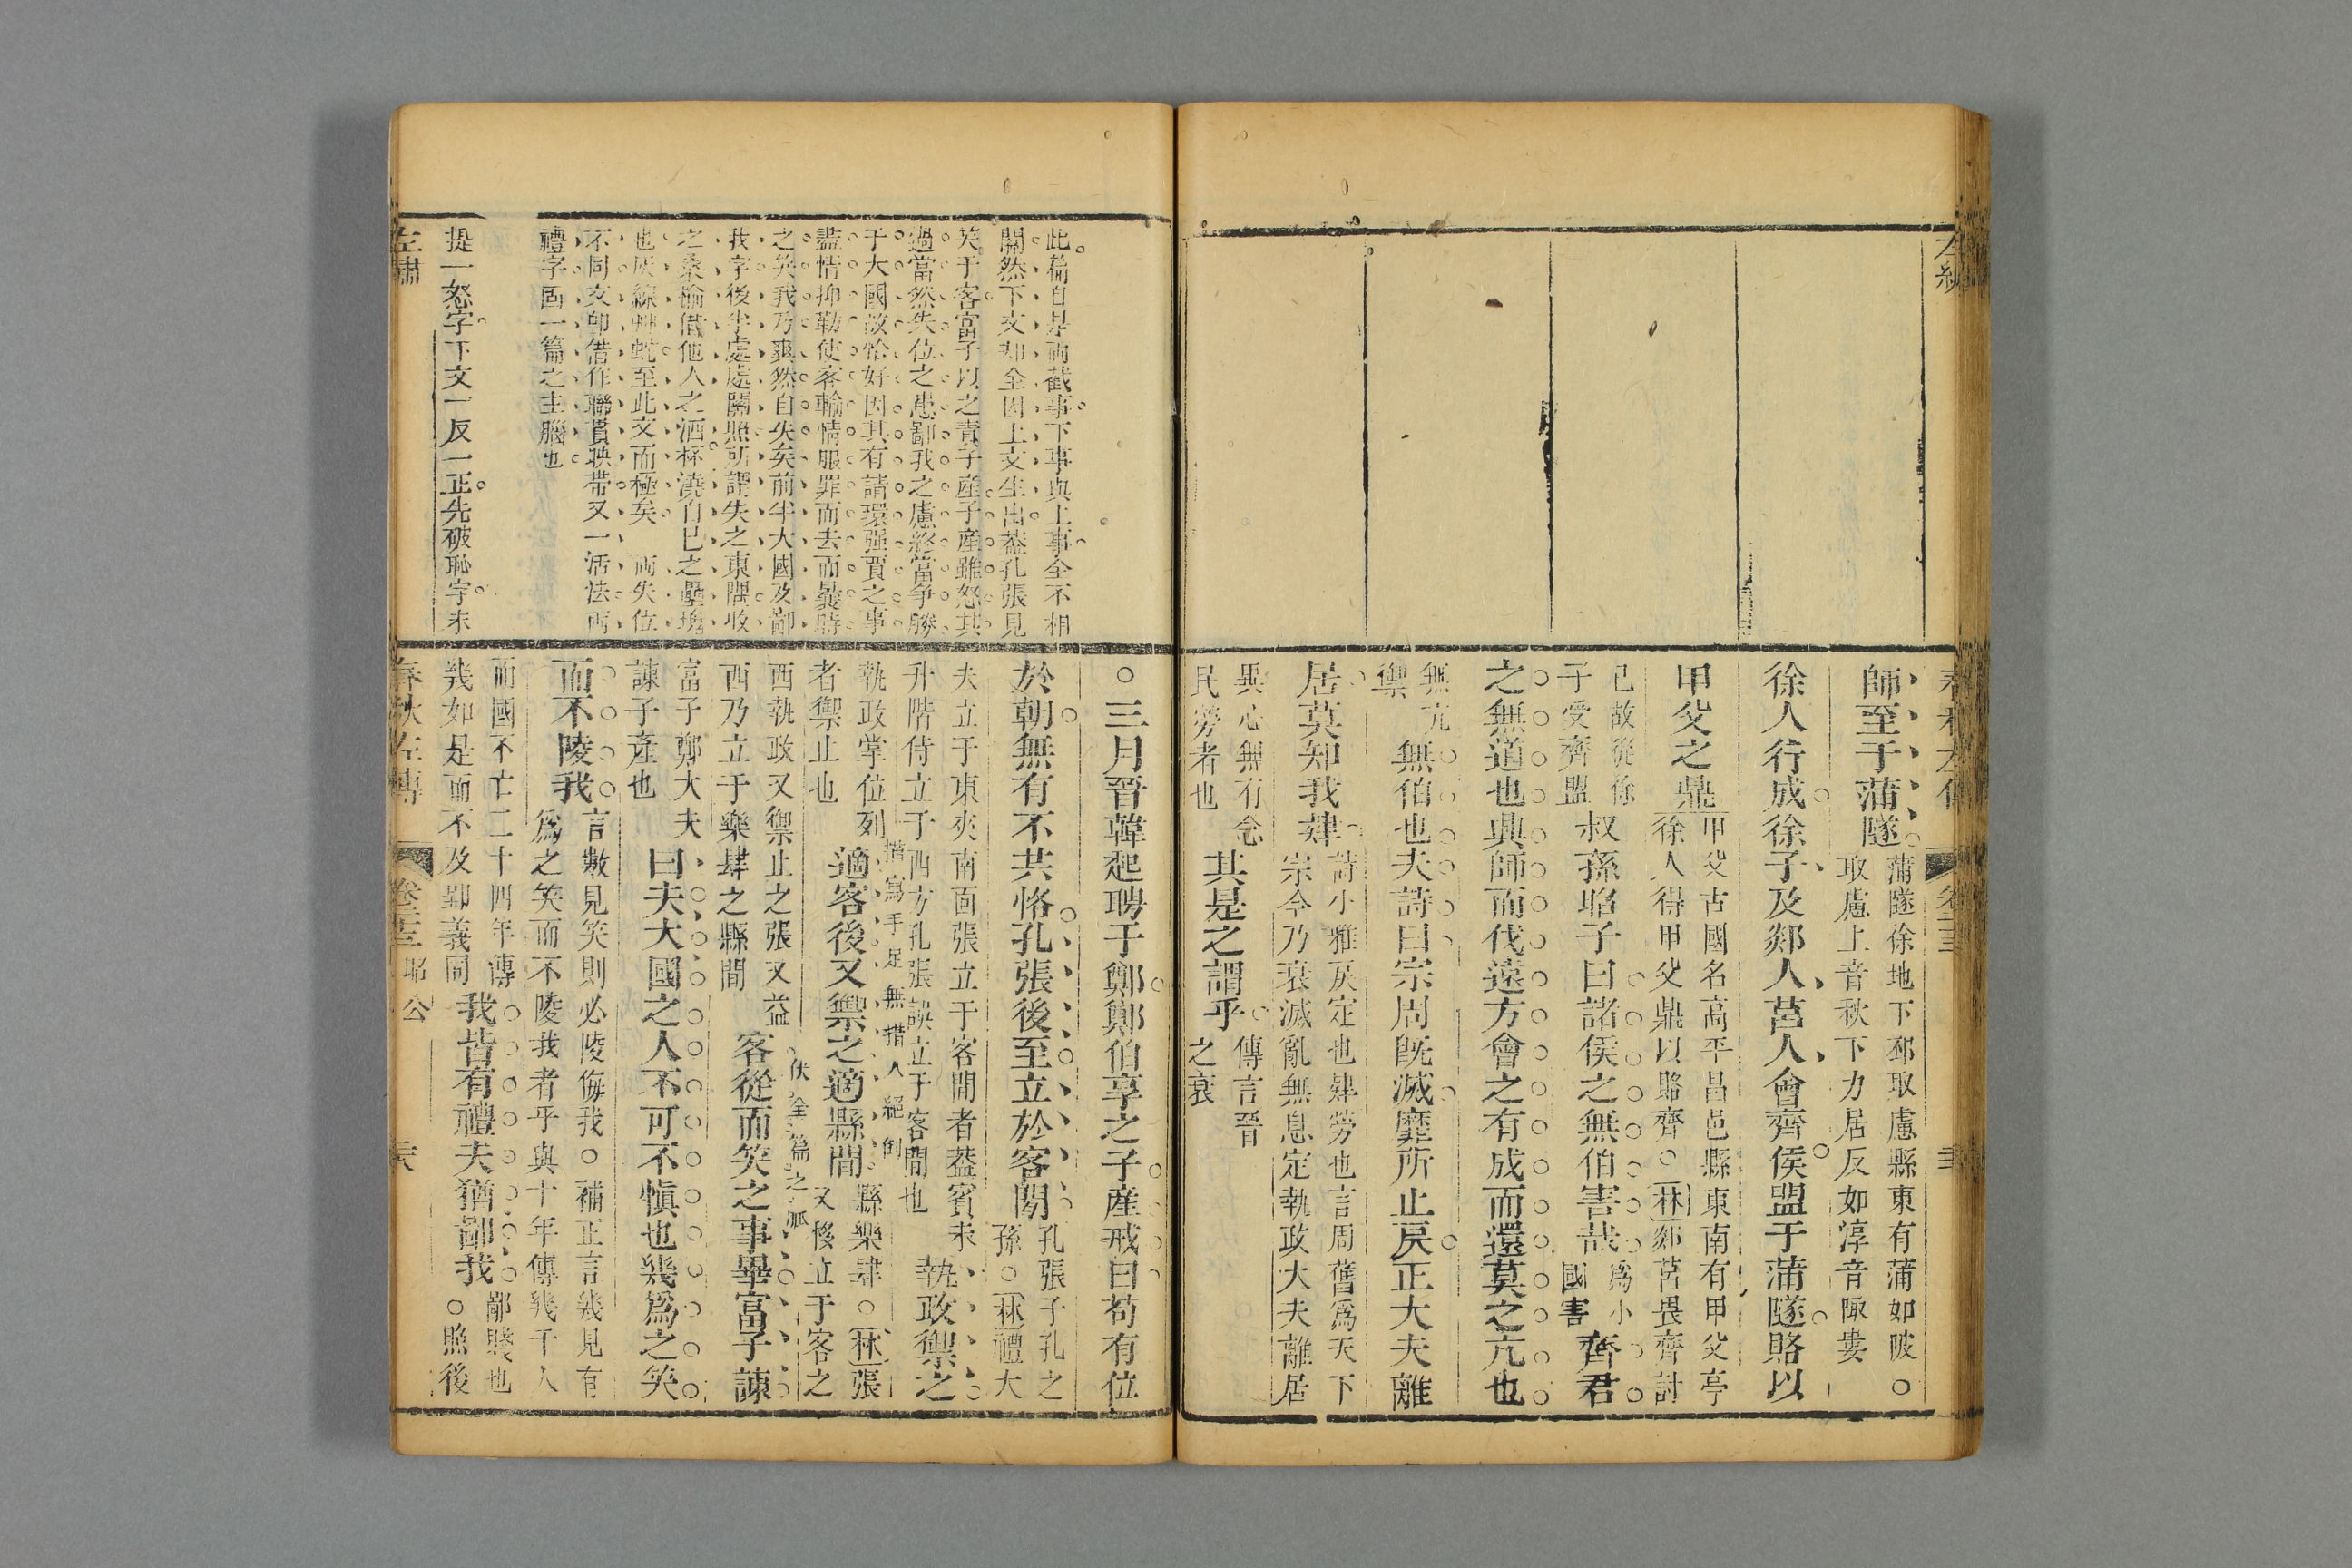 師至于蒲隧
蒲隧徐地下邳取慮縣東有蒲如陂○
取慮上音秋下力居反如淳音陬婁
徐人行成徐子及郯人莒人會齊侯盟于蒲隧賂以
甲父之鼎
甲父古國名高平昌邑縣東南有甲父亭
徐人得甲父鼎以賂齊○林郯莒畏齊討
已故從徐
子受齊盟
叔孫昭子曰諸侯之無伯害哉
為小
國害
齊君
之無道也興師而伐遠方會之有成而還莫之亢也
無亢
禦
無伯也夫詩曰宗周既滅靡所止戾正大夫離
居莫知我肄
詩小雅戾定也肄勞也言周舊為天下
宗今乃衰滅亂無息定執政大夫離居
異心無有念
民勞者也
其是之謂乎
傳言晉
之衰
春秋左傳
卷二十三
○三月晉韓起聘于鄭鄭伯享之子產戒曰苟有位
於朝無有不共恪孔張後至立於客間
孔張子孔之
孫○林禮大
夫立于東夾南面張立于客間者蓋賓未
升階侍立于西方孔張誤立于客間也
執政禦之
執政掌位列
者禦止也
描寫手足無措人絕倒
適客後又禦之適縣間
縣樂肆○林張
又移立于客之
西執政又禦止之張又益
西乃立于樂肆之縣間
伏全篇之脈
客從而笑之事畢富子諫
富子鄭大夫
諫子產也
曰夫大國之人不可不慎也幾為之笑
而不陵我
言數見笑則必陵侮我○補正言幾見有
為之笑而不陵我者乎與十年傳幾千人
而國不亡二十四年傳
幾如是而不及郢義同
我皆有禮夫猶鄙我
鄙賤也
○照後
此篇自是兩截事下事與上事全不相
關然下文却全因上文生出蓋孔張見
笑于客富子以之責子產子產雖怒其
過當然失位之恥鄙我之慮終當爭勝
于大國故恰好因其有請環強賈之事
盡情抑勒使客輸情服罪而去而曩時
之笑我乃爽然自失矣前半大國及鄙
我字後半處處關照所謂失之東隅收
之桑榆借他人之酒杯澆自己之壘塊
也灰線艸蛇至此文而極矣 兩失位
不同文却借作聯貫映帶又一活法兩
禮字固一篇之主腦也
提一怒字下文一反一正先破恥字未
左繡
春秋左傳
卷二十三 昭公